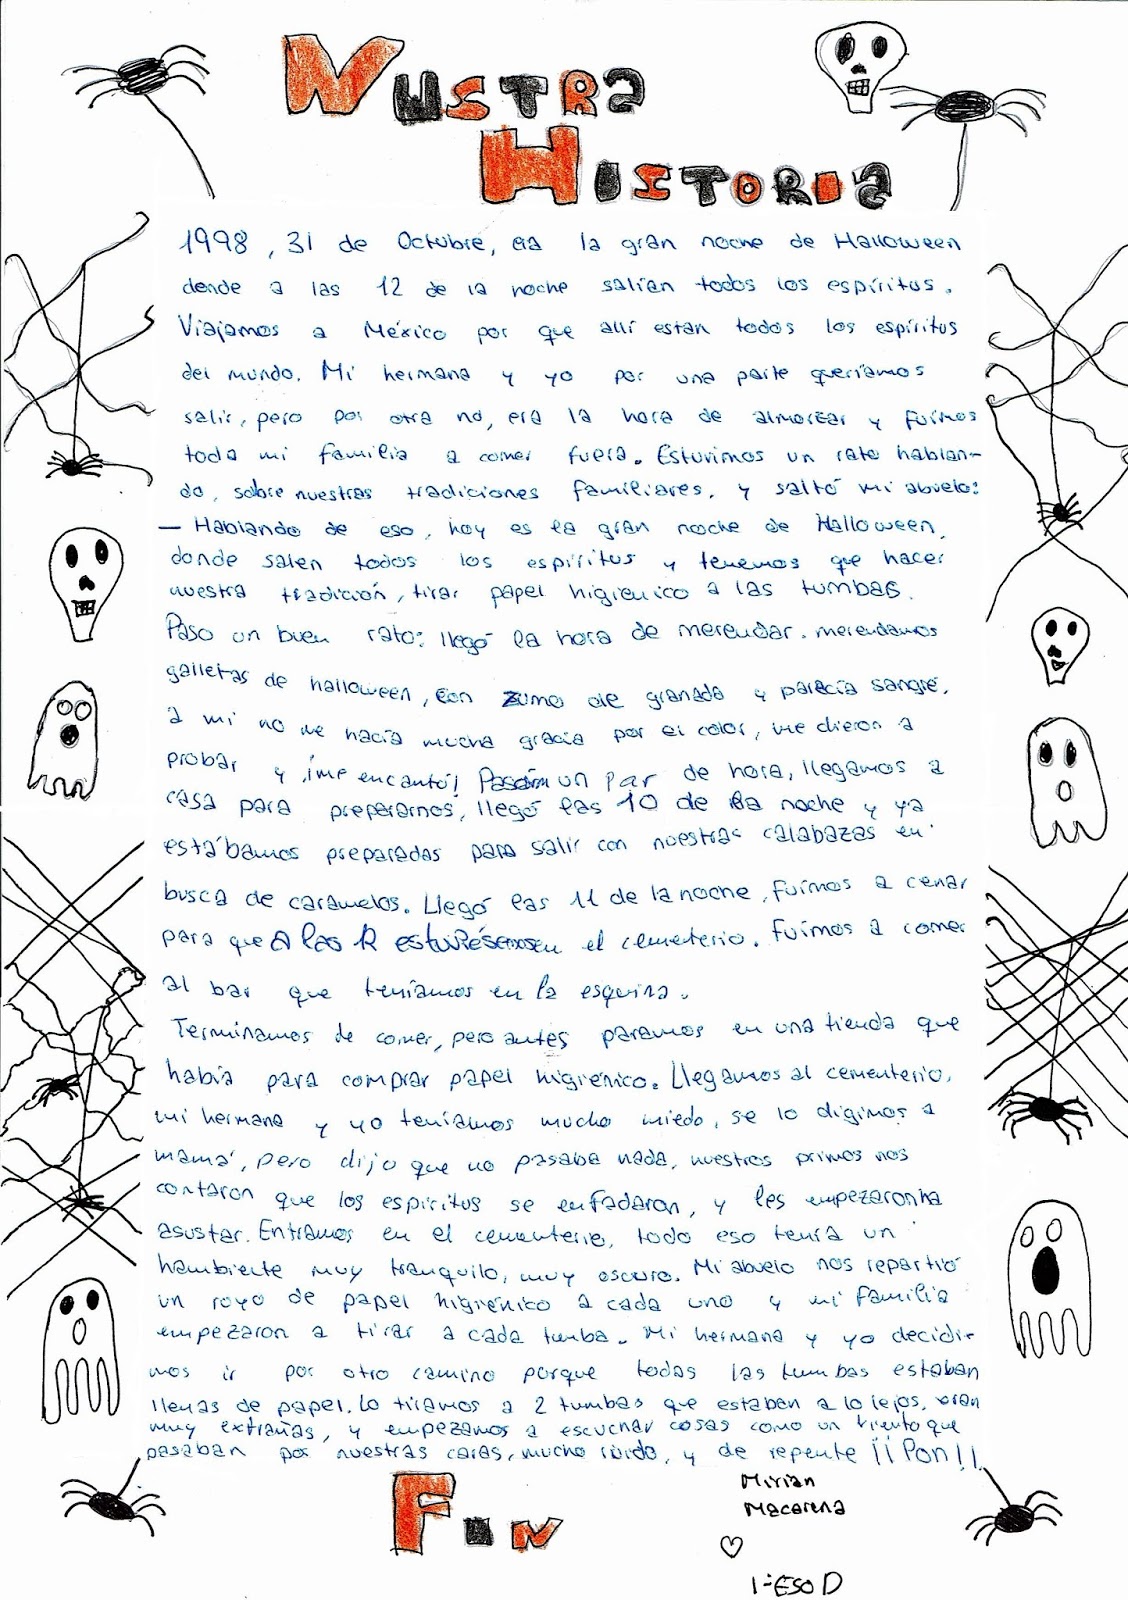 Nustra
Historia
1998, 31 de Octubre, era la gran noche de Halloween
dende a las 12 de la noche salían todos los espíritus.
Viajamos a México por que allí estan todos los espíritus
del mundo. Mi hermana y yo por una parte queríamos
salir, pero por otra no, era la hora de almorzar y fuimos
toda mi familia a comer fuera. Estuvimos un rato hablan-
do, sobre nuestras tradiciones familiares, y saltó mi abuelo:
— Hablando de eso, hoy es la gran noche de Halloween,
donde salen todos los espíritus y tenemos que hacer
nuestra tradición, tirar papel higienico a las tumbas.
Paso un buen rato: llegó la hora de merendar. merendamos
galletas de halloween, con zumo de granada y parecía sangre,
a mi no me hacía mucha gracia por el color, me dieron a
probar y ¡me encantó! Pasaron un par de hora, llegamos a
casa para prepararnos, llegó las 10 de la noche y ya
estábamos preparadas para salir con nuestras calabazas en
busca de caramelos. Llegó las 11 de la noche, fuimos a cenar
para que a las 12 estuviésemos en el cementerio. Fuimos a comer
al bar que teníamos en la esquina.
Terminamos de comer, pero antes paramos en una tienda que
había para comprar papel higiénico. Llegamos al cementerio,
mi hermana y yo teníamos mucho miedo, se lo digimos a
mamá, pero dijo que no pasaba nada, nuestros primos nos
contaron que los espíritus se enfadaron, y les empezaron ha
asustar. Entramos en el cementerio, todo eso tenía un
hambiente muy tranquilo, muy oscuro. Mi abuelo nos repartió
un royo de papel higiénico a cada uno y mi familia
empezaron a tirar a cada tumba. Mi hermana y yo decidi-
mos ir por otro camino porque todas las tumbas estaban
llenas de papel. Lo tiramos a 2 tumbas que estaban a lo lejos, eran
muy extrañas, y empezamos a escuchar cosas como un viento que
pasaban por nuestras caras, mucho ruido, y de repente ¡¡Pon!!
Mirian
Macarena
Fin
1ºESO D